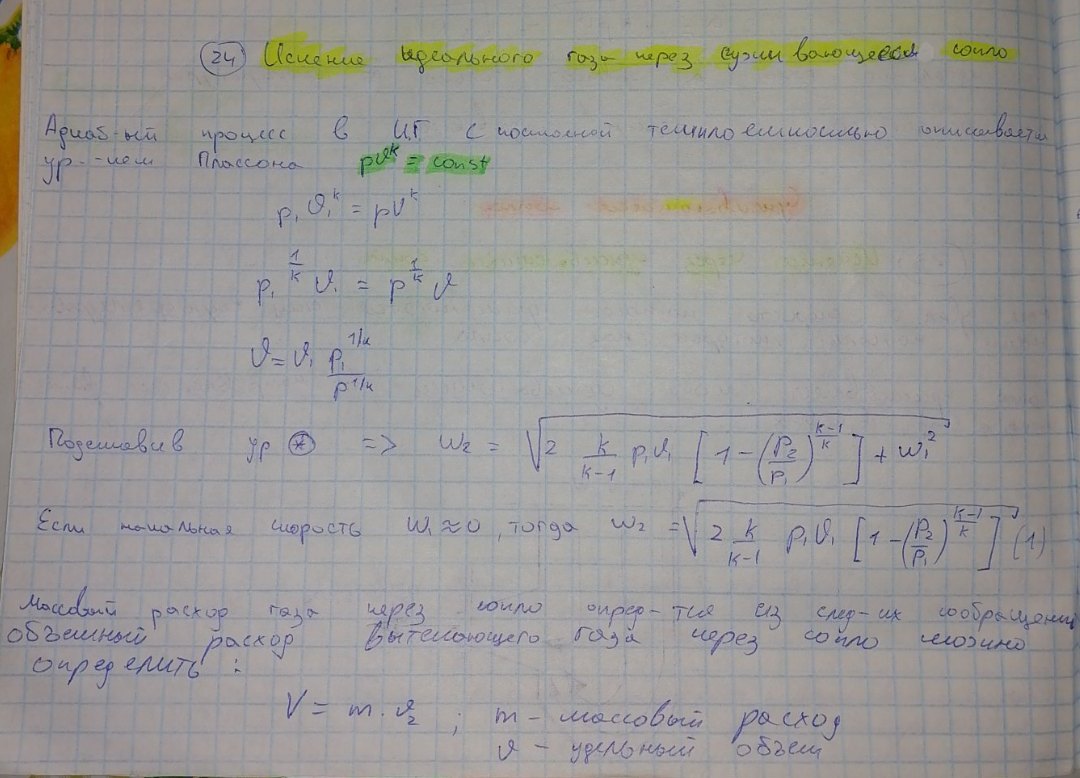 24 Истечение идеального газа через суживающееся сопло
Адиаб-ый процесс в ИГ с постоянной теплоемкостью описывается
ур--ием Пуассона pϑ^k = const
p₁ϑ₁^k = pϑ^k
p₁^(1/k) ϑ₁ = p^(1/k) ϑ
ϑ = ϑ₁ p₁^(1/k) / p^(1/k)
Подставив ур (*) => w₂ = √(2 k/(k-1) p₁ϑ₁ [1-(p₂/p₁)^((k-1)/k)] + w₁²)
Если начальная скорость w₁≈0, тогда w₂ = √(2 k/(k-1) p₁ϑ₁ [1-(p₂/p₁)^((k-1)/k)]) (1)
Массовый расход газа через сопло опред-тся из след-их соображений
объемный расход вытекающего газа через сопло можно
определить:
V = m·ϑ₂ ; m - массовый расход
ϑ - удельный объем